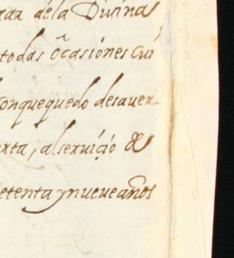 rar dela Divinas
todas ocasiones cui
conquequedo desauer
arta, alseruiçio de
setenta ynueve años